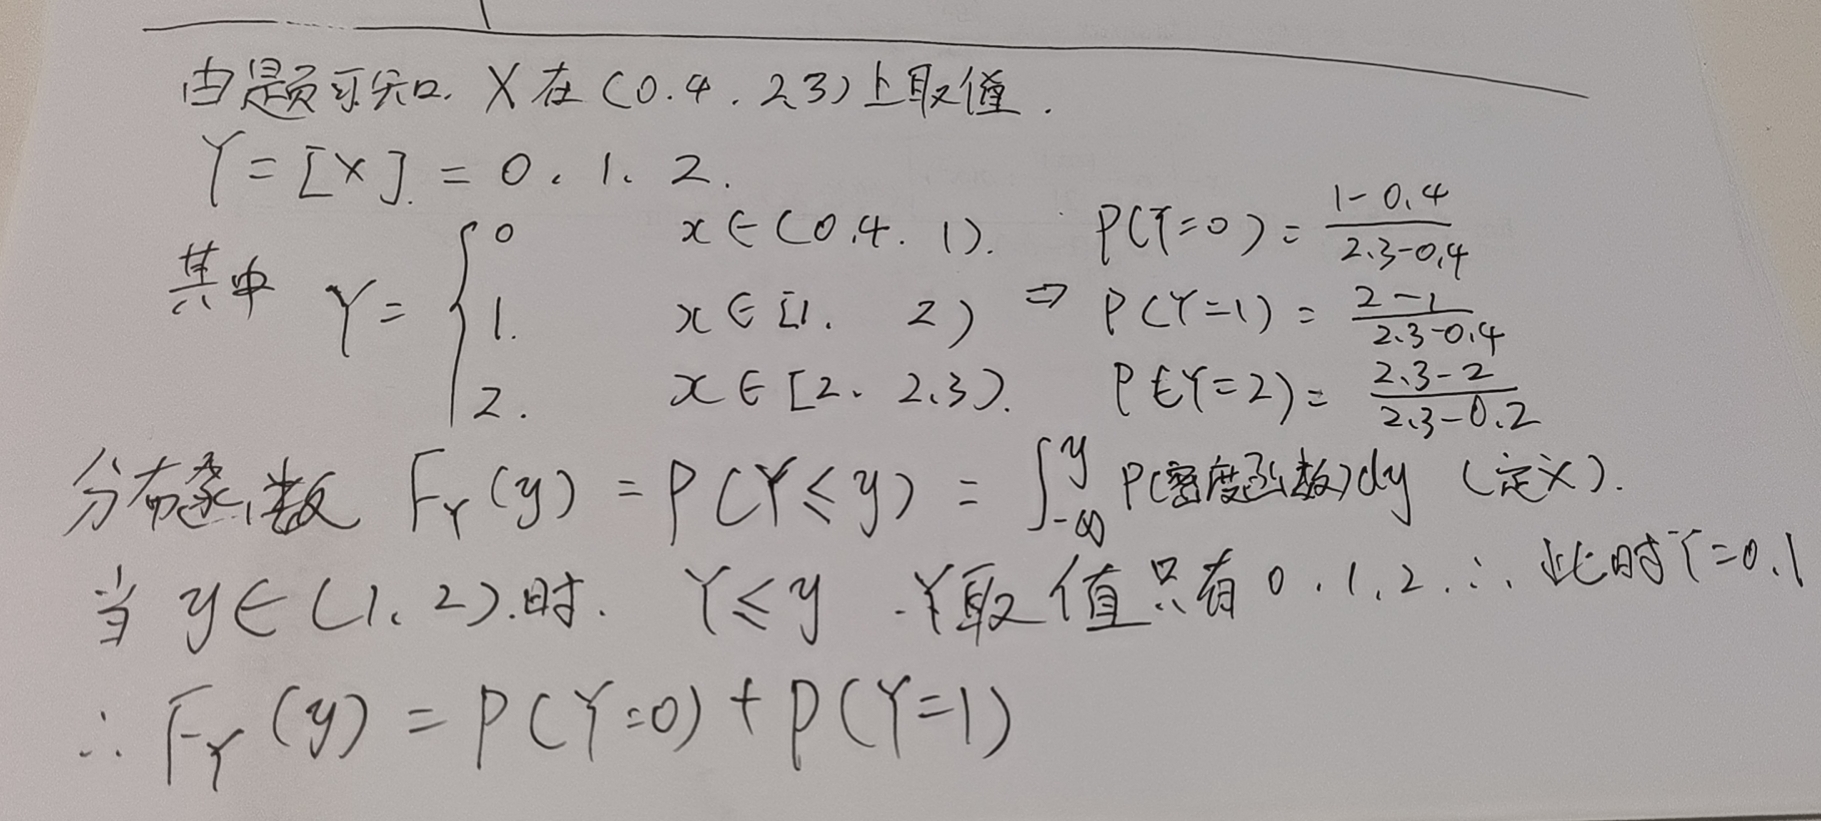 由题可知. X在(0.4.2.3)上取值.
Y=[X].=0.1.2.
其中 Y={0 x∈(0.4.1). P(Y=0)=(1-0.4)/(2.3-0.4)
1. x∈[1.2) ⇒ P(Y=1)=(2-1)/(2.3-0.4)
2. x∈[2.2.3). P(Y=2)=(2.3-2)/(2.3-0.2)
分布函数 F_Y(y)=P(Y≤y)=∫_{-∞}^{y} P(密度函数)dy (定义).
当y∈(1.2).时. Y≤y .Y取值只有0.1.2.∴.此时Y=0.1
∴F_Y(y)=P(Y=0)+P(Y=1)